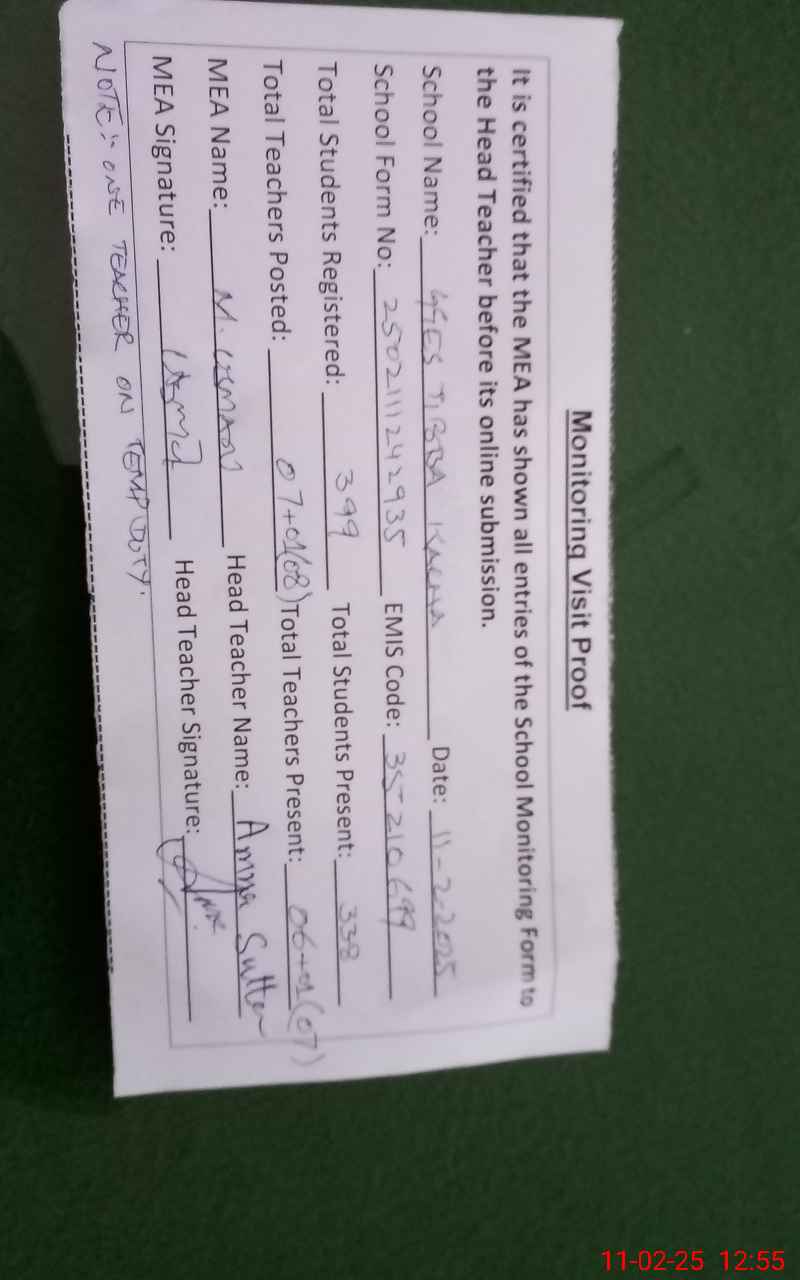 Monitoring Visit Proof
It is certified that the MEA has shown all entries of the School Monitoring Form to
the Head Teacher before its online submission.
School Name: GGES TIBBA Date: 11-2-2025
School Form No: 250211124 2935 EMIS Code: 35210699
Total Students Registered: 399 Total Students Present: 338
Total Teachers Posted: 07+01(08) Total Teachers Present: 06+01(07)
MEA Name: M. USMAN Head Teacher Name: Amna
MEA Signature: Head Teacher Signature:
NOTE:- ONE TEACHER ON TEMP DUTY.
11-02-25 12:55